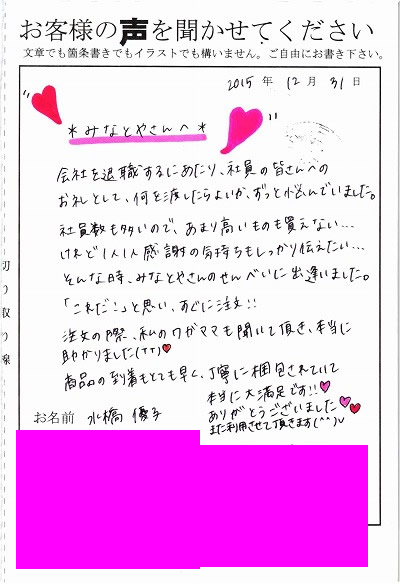 お客様の声を聞かせてください
文章でも箇条書きでもイラストでも構いません。ご自由にお書き下さい。
2015 年 12 月 31 日
＊みなとやさんへ＊
会社を退職するにあたり、社員の皆さんへの
お礼として、何を渡したらよいか、ずっと悩んでいました。
社員数も多いので、あまり高いものも買えない…
けれど1人1人感謝の気持ちもしっかり伝えたい…
そんな時、みなとやさんのせんべいに出逢いました。
「これだ!」と思い、すぐに注文!!
注文の際、私のワガママも聞いて頂き、本当に
助かりました(TT)♥
商品の到着もとても早く、丁寧に梱包されていて
本当に大満足です!!♥
ありがとうございました♥♥
また利用させて頂きます(^^)
お名前 水橋 優子
切り取り線